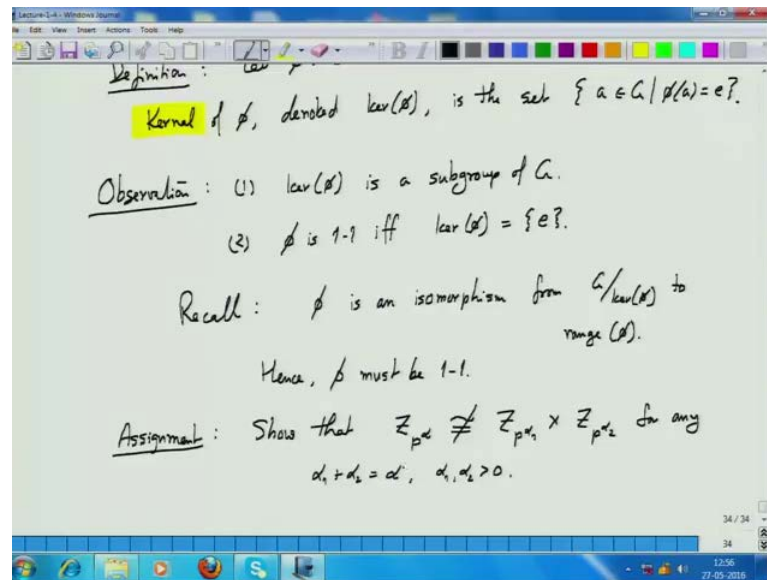 Lecture-1-4 - Windows Journal
Edit View Insert Actions Tools Help
Definition :
Kernel of ø, denoted ker(ø), is the set { a ∈ G | ø(a) = e }.
Observation : (1) ker(ø) is a subgroup of G.
(2) ø is 1-1 iff ker(ø) = {e}.
Recall : ø is an isomorphism from G/ker(ø) to
range (ø).
Hence, ø must be 1-1.
Assignment : Show that Z_{p^α} ≇ Z_{p^{α₁}} × Z_{p^{α₂}} for any
α₁ + α₂ = α, α₁, α₂ > 0.
34 / 34
34
12:56
27-05-2016